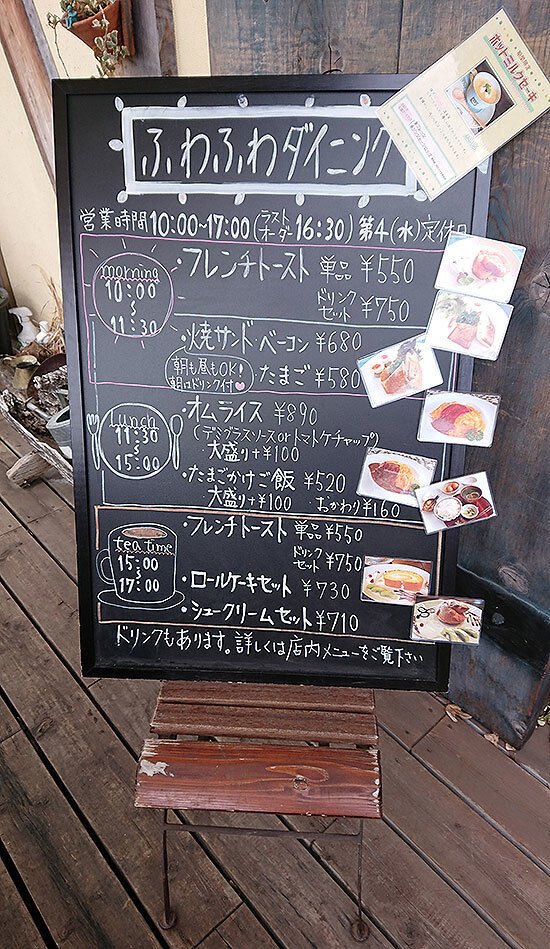 ホットミルクセーキ
ふわふわダイニング
営業時間 10:00~17:00 (ラストオーダー 16:30) 第4(水)定休日
morning
10:00
~
11:30
・フレンチトースト 単品 ¥550
ドリンクセット ¥750
・焼サンド・ベーコン ¥680
朝も昼もOK!
朝はドリンク付
たまご ¥580
Lunch
11:30
~
15:00
・オムライス ¥890
(デミグラスソースorトマトケチャップ)
大盛り+¥100
・たまごかけご飯 ¥520
大盛り+¥100 おかわり¥160
tea time
15:00
~
17:00
・フレンチトースト 単品 ¥550
ドリンクセット ¥750
・ロールケーキセット ¥730
・シュークリームセット ¥710
ドリンクもあります。詳しくは店内メニューをご覧下さい